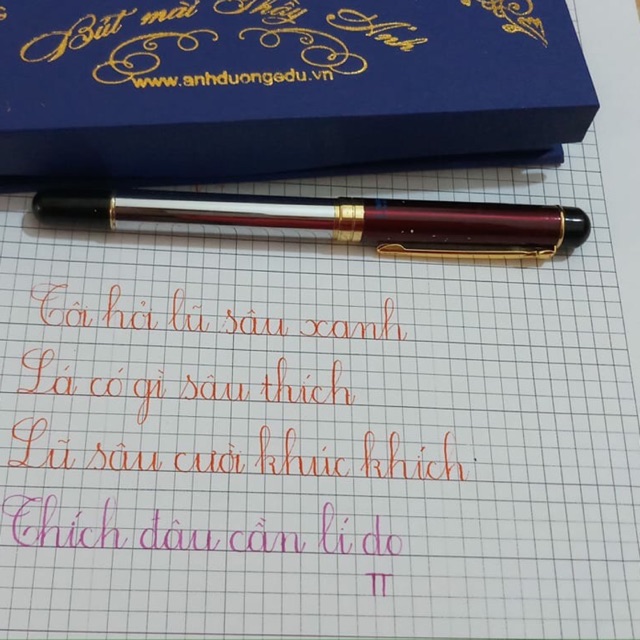 Bút mài Thầy Ánh
www.anhduongedu.vn
Tôi hỏi lũ sâu xanh
Lá có gì sâu thích
Lũ sâu cười khúc khích
Thích đâu cần lí do
TT